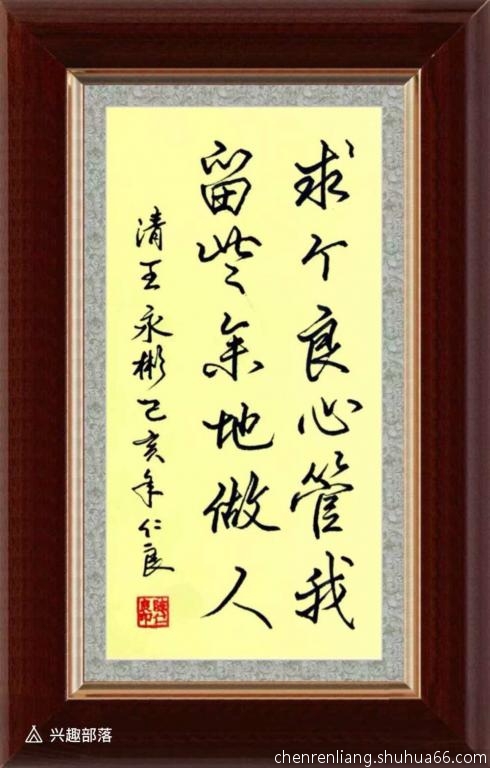 求个良心管我
留些余地做人
清王永彬己亥年仁良
陈仁良印
兴趣部落
chenrenliang.shuhua66.com